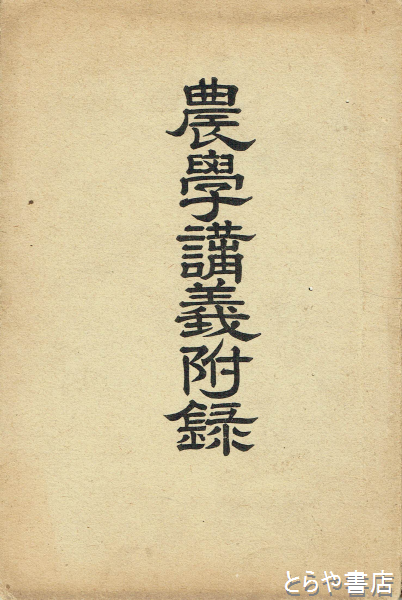 農學講義附録
とらや書店